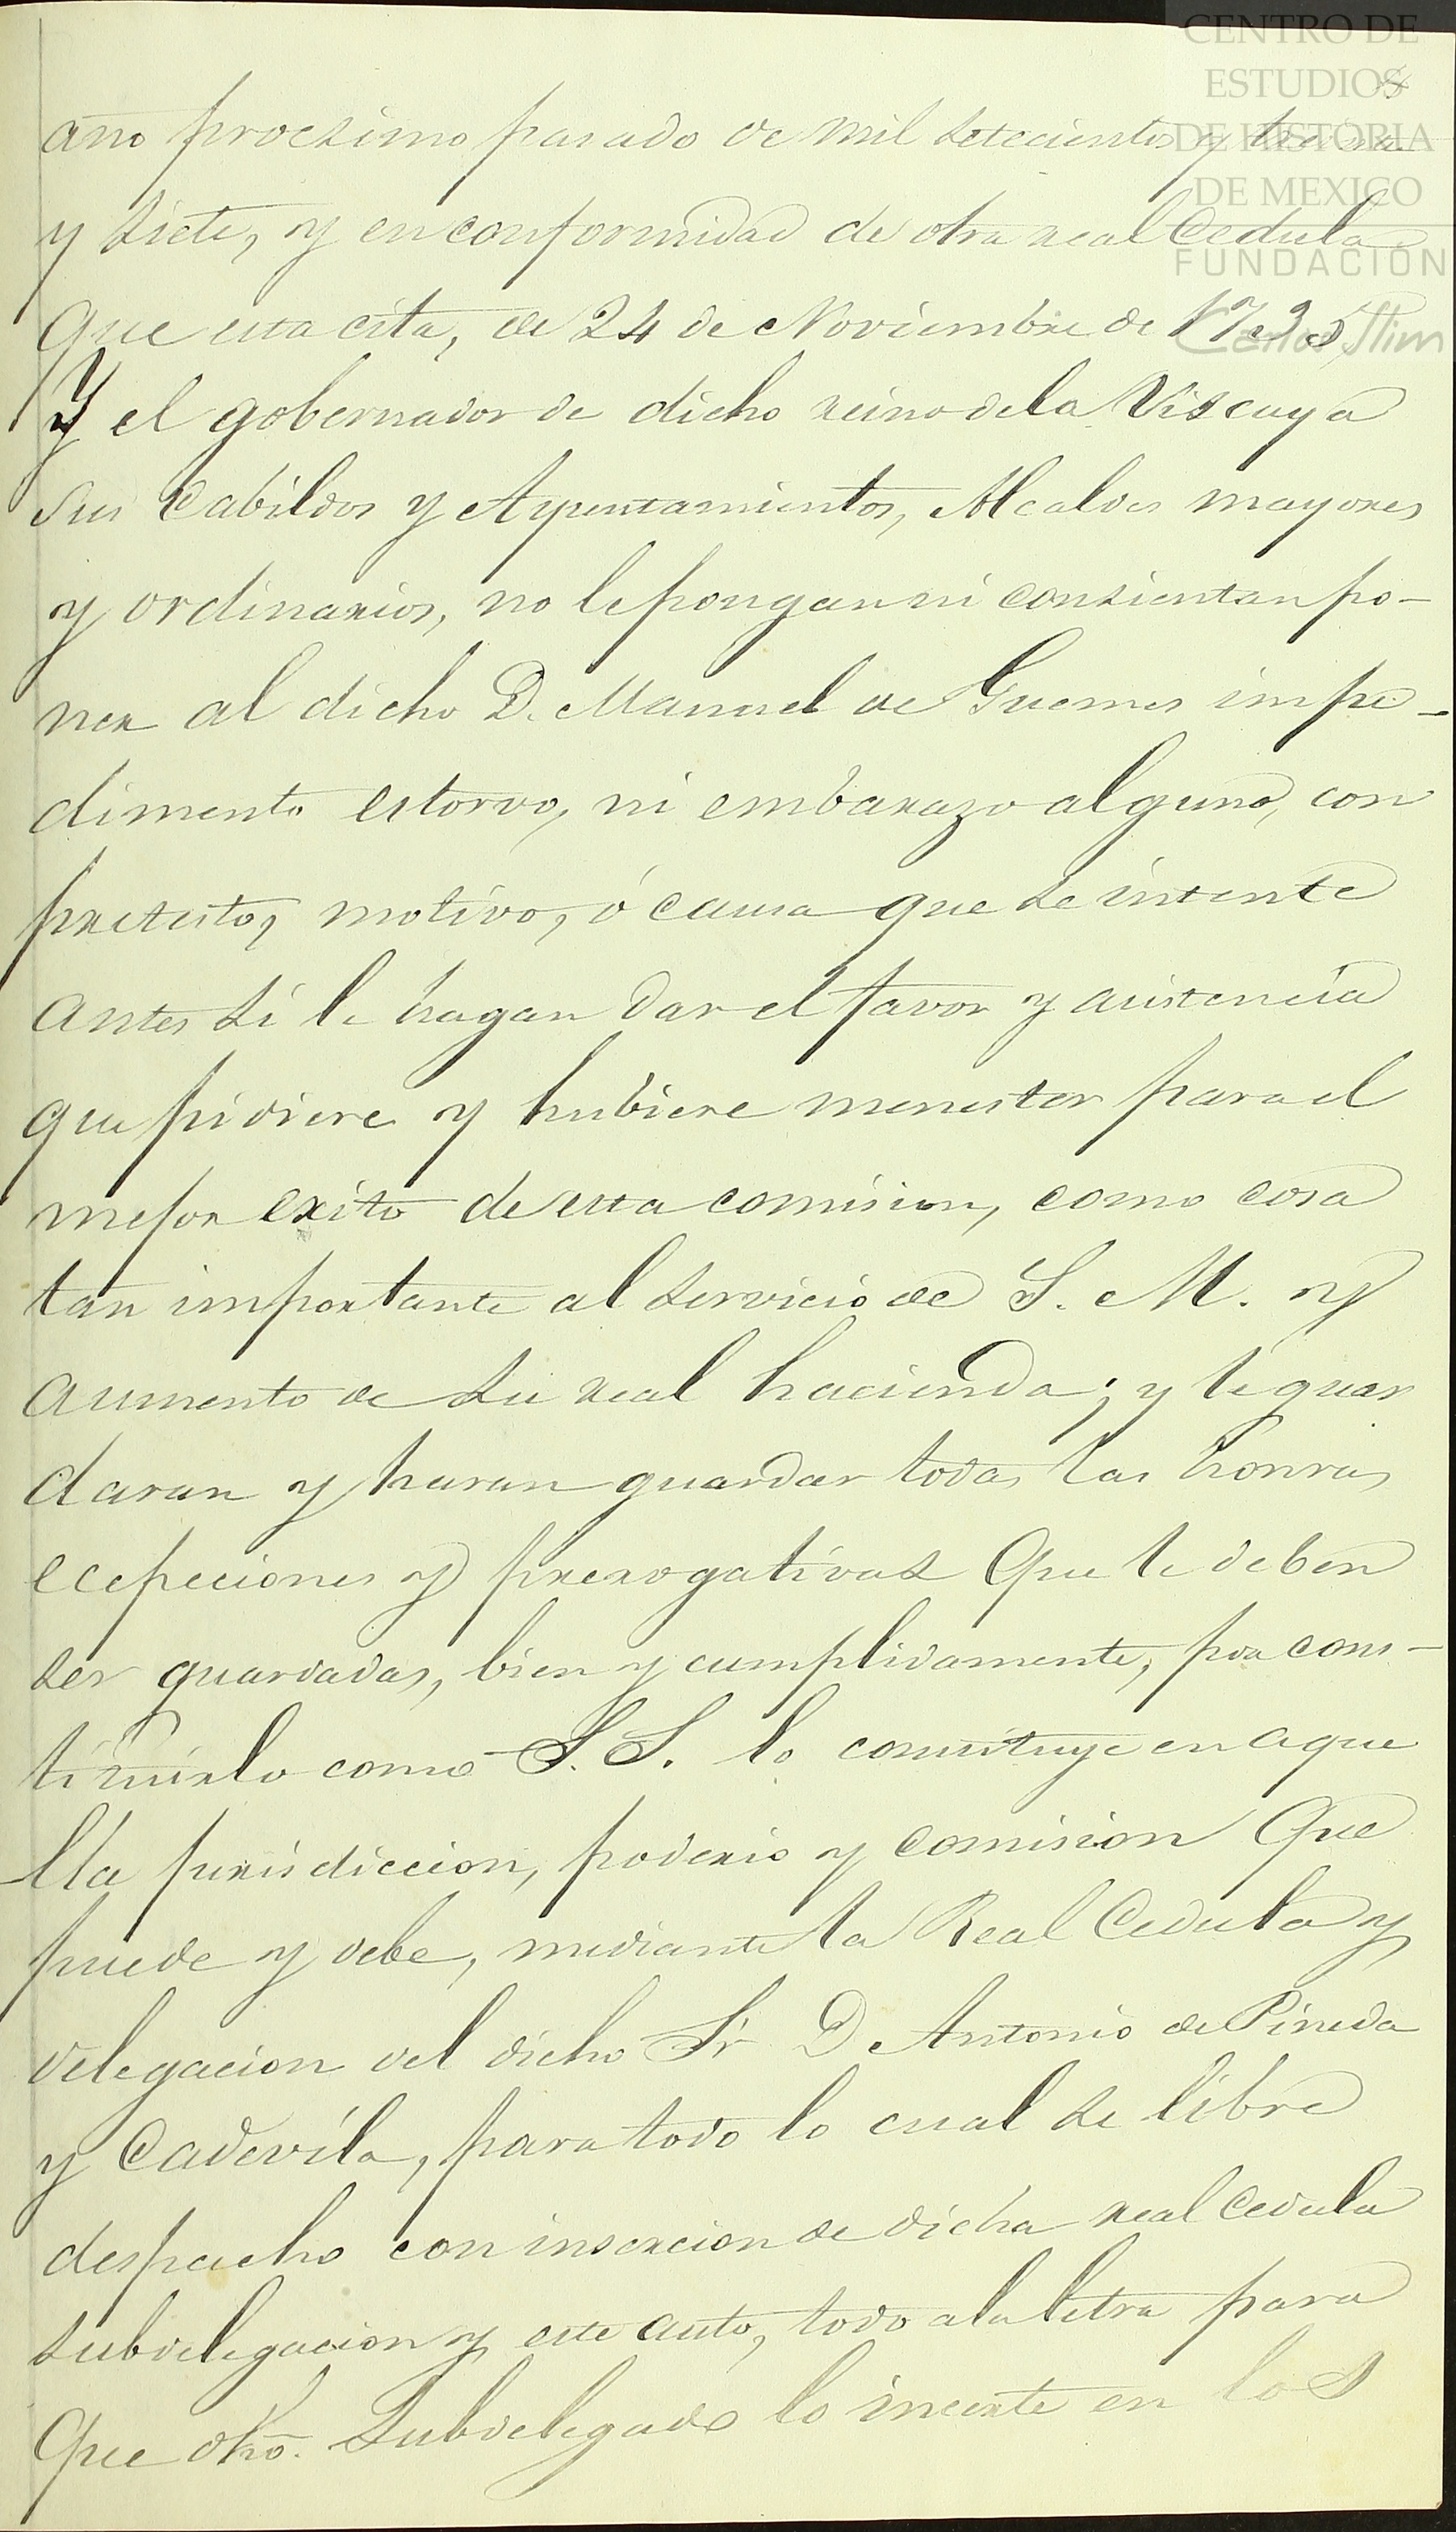 CENTRO DE
ESTUDIOS
DE HISTORIA
DE MEXICO
FUNDACIÓN
Carlos Slim
4
año procsimo pasado de mil setecientos y treinta
y siete, y en conformidad de otra real Cedula
que esta cita, de 24 de Noviembre de 1735,
Y el gobernador de dicho reino de la Viscaya
sus Cabildos y Ayuntamientos, Alcaldes mayores
y ordinarios, no le pongan ni consientan po-
ner al dicho D. Manuel de Guemes impe-
dimento estorvo, ni embarazo alguno, con
pretesto, motivo, ó causa que se intente
antes si le hagan dar el favor y asistencia
que pidiere y hubiere menester para el
mejor exito de esta comision, como cosa
tan importante al servicio de S. M. y
aumento de su real hacienda; y le guar
daran y haran guardar todas las honras,
ecepciones y prerogativas que le deben
ser guardadas, bien y cumplidamente, por cons-
tituirlo como S. S. lo constituye en aque
lla jurisdiccion, poderio y comision que
puede y debe, mediante la Real Cedula y
delegacion del dicho Sr D. Antonio de Pineda
y Cadevila, para todo lo cual se libre
despacho con insercion de dicha real cedula
subdelegacion y este auto, todo a la letra para
que dho. Subdelegado lo incerte en los